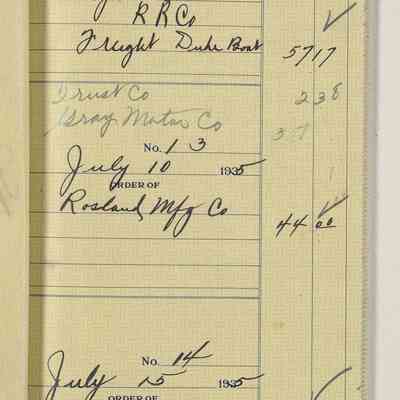 R R Co
Freight Duke Boat 57 17
Trust Co 2 38
Gray Motor Co 37
No. 13
July 10 1935
ORDER OF
Rosland Mfg Co 44 00
No. 14
July 15 1935
ORDER OF